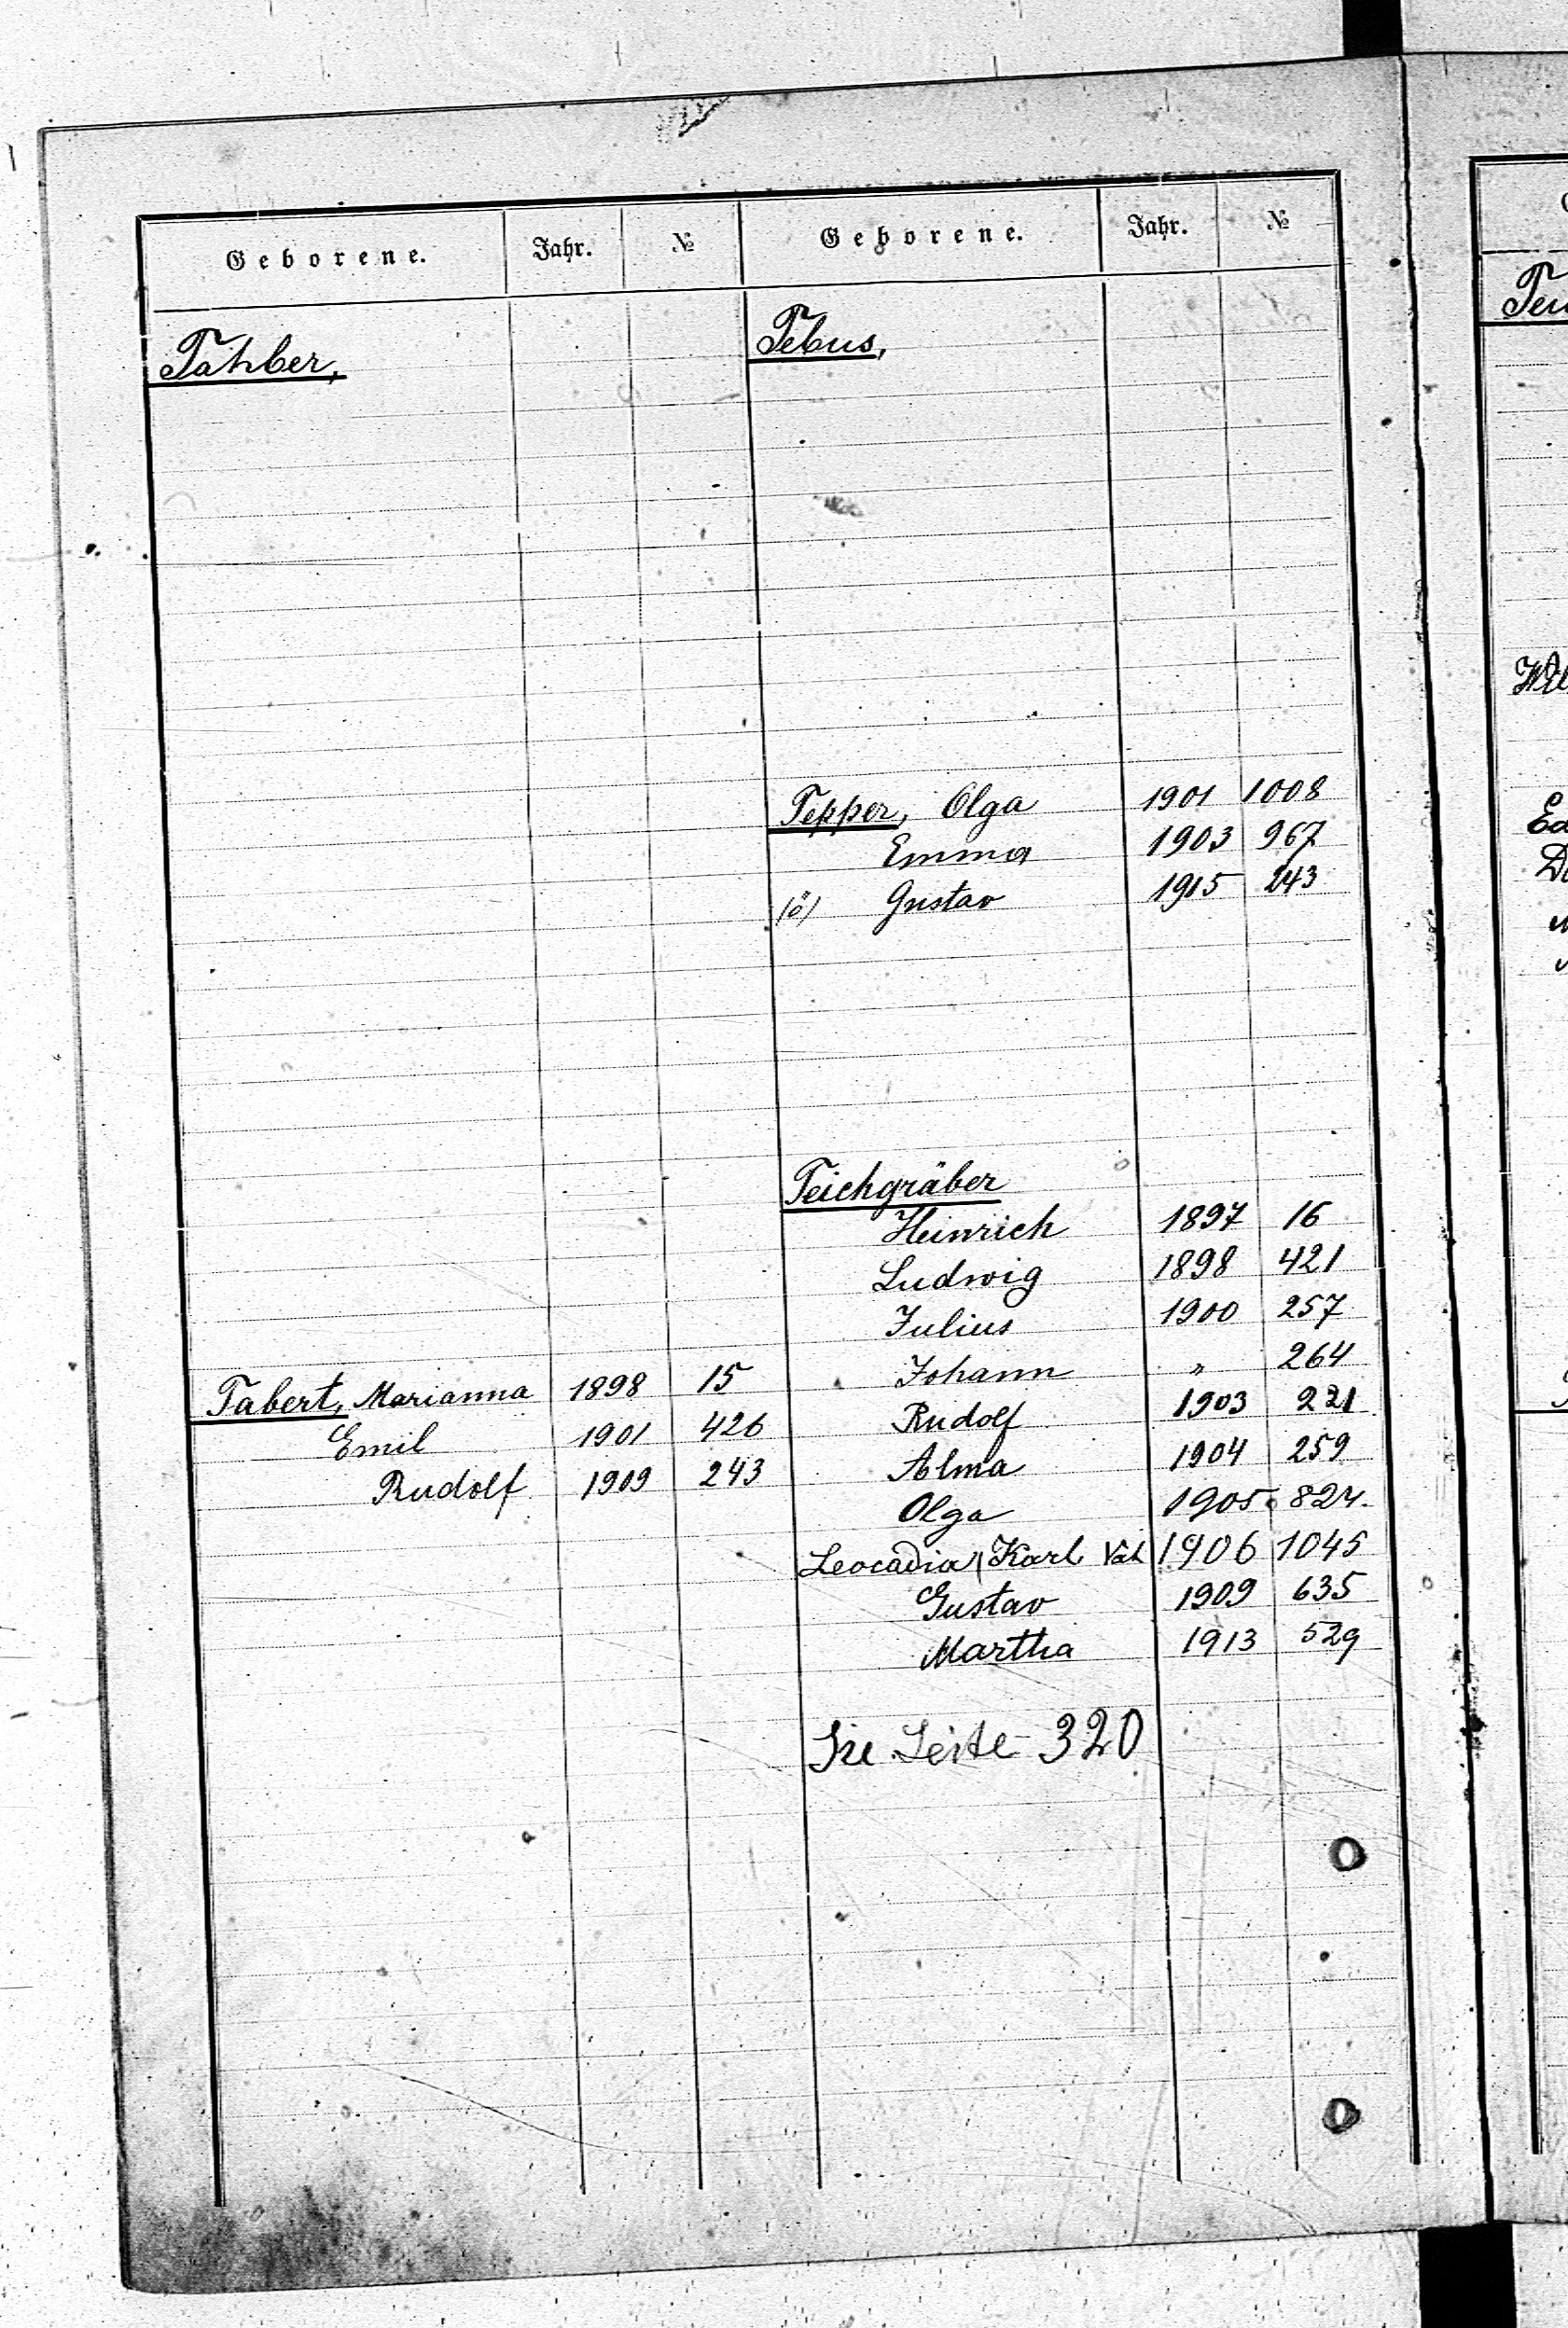 Geborene. Jahr. №
Tahber,
Tabert, Marianna 1898 15
Emil 1901 426
Rudolf 1909 243
Geborene. Jahr. №
Tebus,
Tepper, Olga 1901 1008
Emma 1903 967
Gustav 1915 243
Teichgräber
Heinrich 1897 16
Ludwig 1898 421
Julius 1900 257
Johann " 264
Rudolf 1903 221
Alma 1904 259
Olga 1905 824
Leocadia Karl 1906 1045
Gustav 1909 635
Martha 1913 529
Seite 320